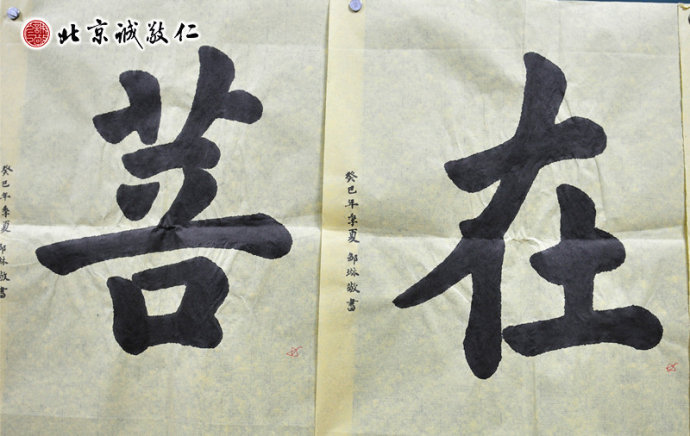 北京诚敬仁
菩
在
癸巳年季夏 邹琳敬書
癸巳年季夏 邹琳敬書